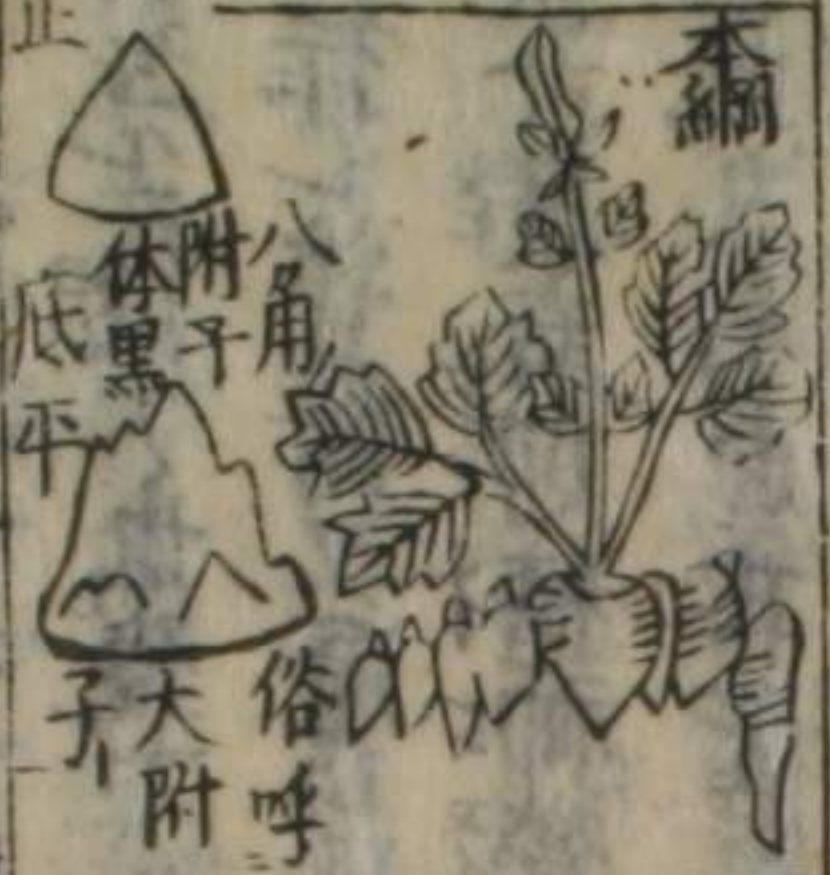 本綱
八角
附子
体黒
底平
俗呼
大附
子
正